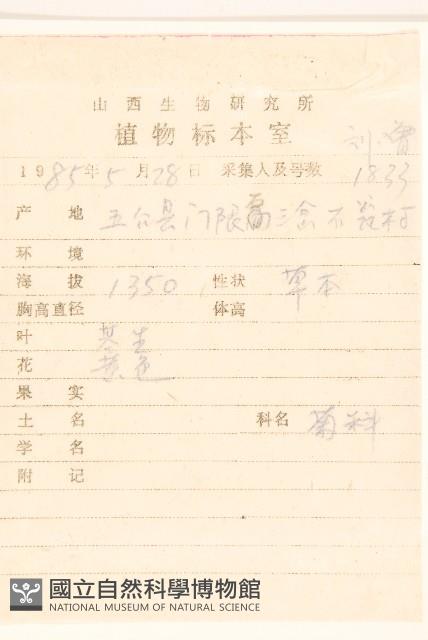 山西生物研究所
植物标本室
1985年5月28日 采集人及号数 刘 1833
产地 五台县门限 村
环境
海拔 1350 性状 草本
胸高直径 体高
叶 基生
花 黄色
果实
土名 科名 菊科
学名
附记
國立自然科學博物館
NATIONAL MUSEUM OF NATURAL SCIENCE